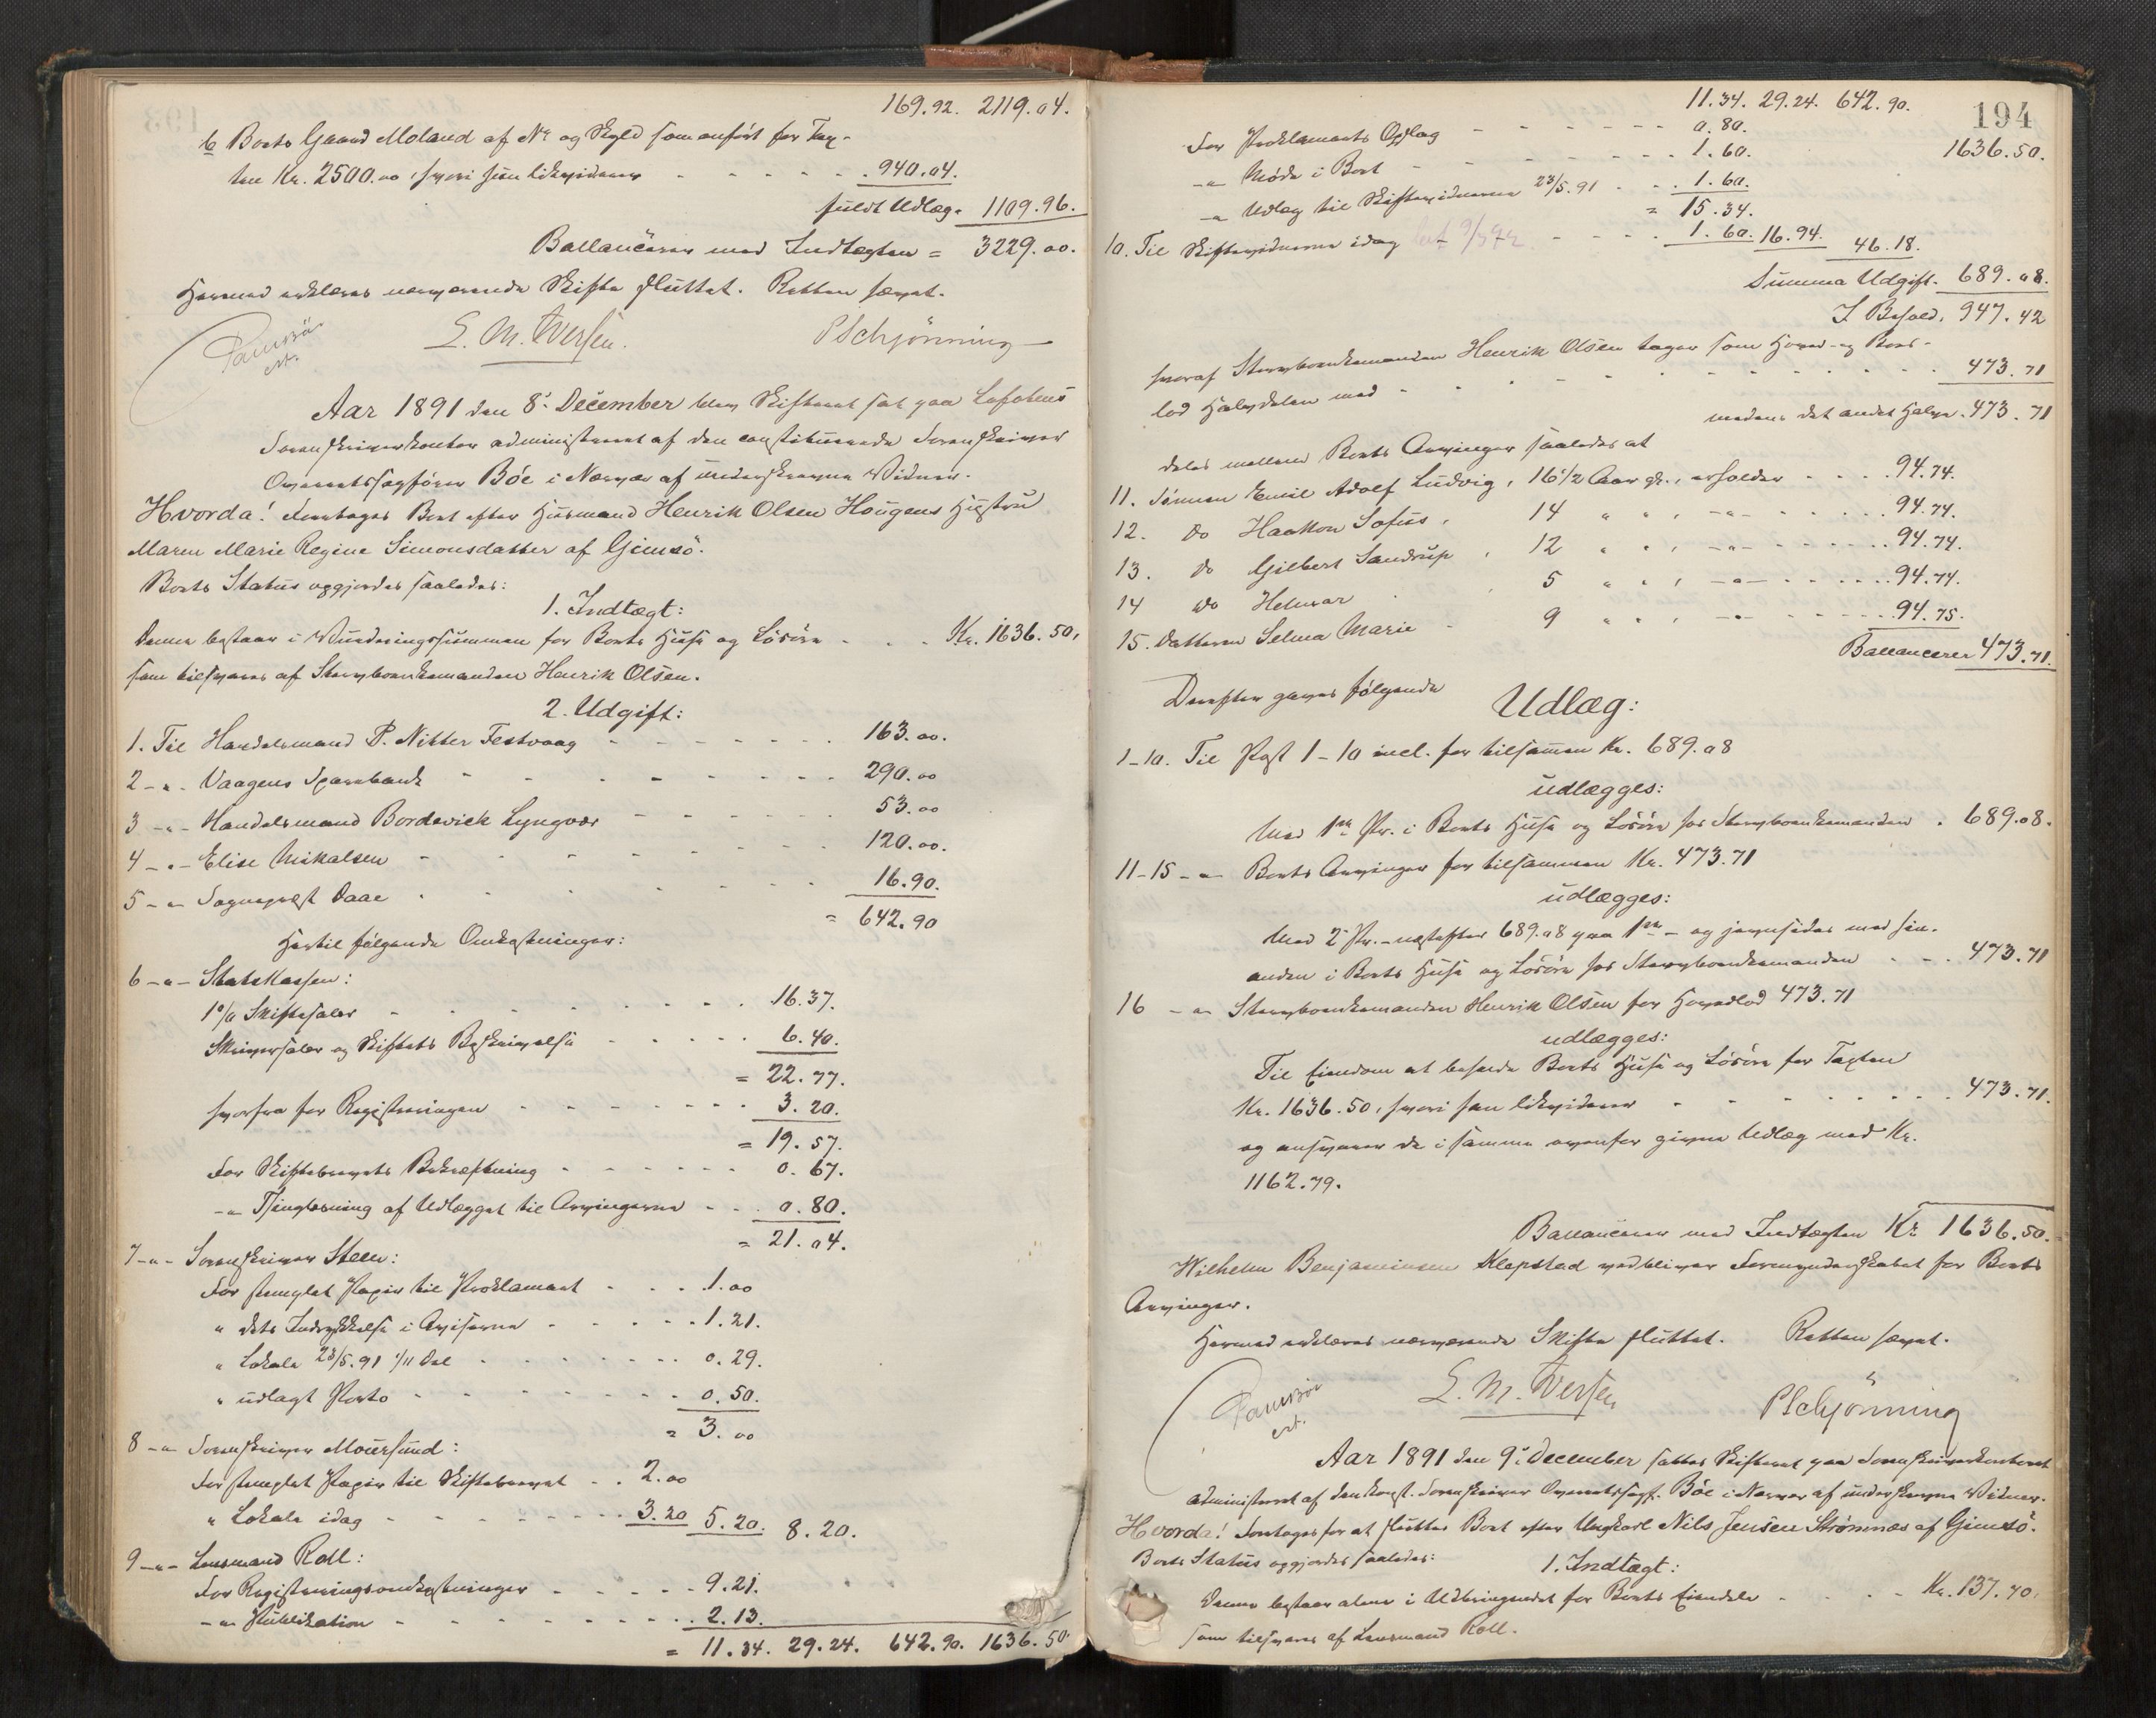 169.92. 2119.04.
b Boets Gaard Moland af No og Skyld som anført for Tax-
ten Kr. 2500.00, hvori hun likviderer - - - - 940.04.
fuldt Udlæg. 1109.96.
Ballancerer med Indtægten = 3229.00.
Hermed erklæres nærværende Skifte sluttet. Retten hævet.
E. M. Iversen. P Schjønning
Aar 1891 den 8de December blev Skifteret sat paa Lofotens
Sorenskriverkontor administreret af den constituerede Sorenskriver
Overretssagfører Böe i Nærvær af underskrevne Vidner.
Hvorda! Foretoges Boet efter Husmand Henrik Olsen Hougens Hustru
Maren Marie Regine Simonsdatter af Gimsö.
Boets Status opgjordes saaledes:
1. Indtægt:
Denne bestaar i Vurderingssummen for Boets Huse og Lösöre - - - Kr. 1636.50,
som tilsvares af Stervboenkemanden Henrik Olsen.
2. Udgift:
1. Til Handelsmand P. Nitter Festvaag - - - - 163.00.
2 - " - Vaagens Sparebank - - - - 290.00
3 - " - Handelsmand Bordevick Lyngvær - - - - 53.00
4 - " - Elise Mikalsen - - - - 120.00.
5 - " - Sogneprest Daae - - - - 16.90.
= 642.90
Hertil følgende Omkostninger:
6 - " - Statskassen:
1% Skiftesaler - - - - 16.37.
Skriversaler og Skiftets Beskrivelse - - - - 6.40.
= 22.77.
hvorfra for Registreringen - - - - 3.20.
= 19.57.
For Skiftebrevets Bekræftning - - - - 0.67.
- " - Thinglæsning af Udlægget til Arvingerne - - - 0.80.
= 21.04.
7 - " - Sorenskriver Steen:
For stemplet Papir til Proklamaet - - - 1.00
" dets Indrykkelse i Aviserne - - - - 1.21.
" Lokale 23/5.91 1/11 Del - - - - 0.29.
" udlagt Porto - - - - 0.50.
= 3.00
8 - " - Sorenskriver Moursund:
For stemplet Papir til Skiftebrevet - - 2.00
" Lokale idag - - - - 3.20 5.20. 8.20.
9 - " - Lensmand Roll:
For Registreringsomkostninger - - - - 9.21.
- " - Publikation - - - - 2.13.
= 11.34. 29.24. 642.90. 1636.50.
194
11.34. 29.24. 642.90.
1636.50.
For Proklamaets Opslag - - - - 0.80.
- " - Møde i Boet - - - - 1.60.
- " - Udlæg til Skiftevidnerne 23/5.91 - - - 1.60.
= 15.34.
10. Til Skiftevidnerne idag - - - 1.60. 16.94. 46.18.
Summa Udgift. 689.08.
I Behold. 947.42
hvoraf Stervboenkemanden Henrik Olsen tager som Hoved- og Boes-
lod Halvdelen med - - - - 473.71
medens det andet Halve. 473.71
deles mellem Boets Arvinger saaledes at
11. Sønnen Emil Adolf Ludvig, 16 1/2 Aar gl., erholder - - - 94.74.
12. do Haakon Sofus, 14 " " , - " - - - - 94.74.
13. do Gilbert Sandrup, 12 " " , - " - - - - 94.74.
14 do Helmar , 5 " " , - " - - - - 94.74.
15. Datteren Selma Marie - 9 " " , - " - - - - 94.75.
Ballancerer 473.71.
Derefter gaves følgende
Udlæg:
1-10. Til Post 1-10 incl. for tilsammen Kr. 689.08
udlægges:
Med 1ste Pr. i Boets Huse og Lösöre hos Stervboenkemanden . 689.08.
11-15 - " - Boets Arvinger for tilsammen Kr. 473.71
udlægges:
Med 2 Pr. - næstefter 689.08 paa 1ste - og jevnsides med hin-
anden i Boets Huse og Lösöre hos Stervboenkemanden - - - 473.71
16 - " - Stervboenkemanden Henrik Olsen for Hovedlod 473.71
udlægges:
Til Eiendom at beholde Boets Huse og Lösöre for Taxten
Kr. 1636.50, hvori han likviderer - - - - 473.71.
og ansvarer de i samme ovenfor givne Udlæg med Kr.
1162.79.
Ballancerer med Indtægten Kr. 1636.50.
Wilhelm Benjaminsen Klepstad vedbliver Formynderskabet for Boets
Arvinger.
Hermed erklæres nærværende Skifte sluttet. Retten hævet.
E. M. Iversen P Schjønning
Aar 1891 den 9de December sattes Skifteret paa Sorenskriverkontoret
administreret af den const. Sorenskriver Overretssagf. Böe i Nærvær af underskrevne Vidner.
Hvorda! Foretoges for at sluttes Boet efter Ungkarl Nils Jensen Strømnæs af Gimsö.
Boets Status opgjordes saaledes: 1. Indtægt:
Denne bestaar alene i Udbringendet for Boets Eiendele - - - - Kr. 137.70,
som tilsvares af Lensmand Roll.